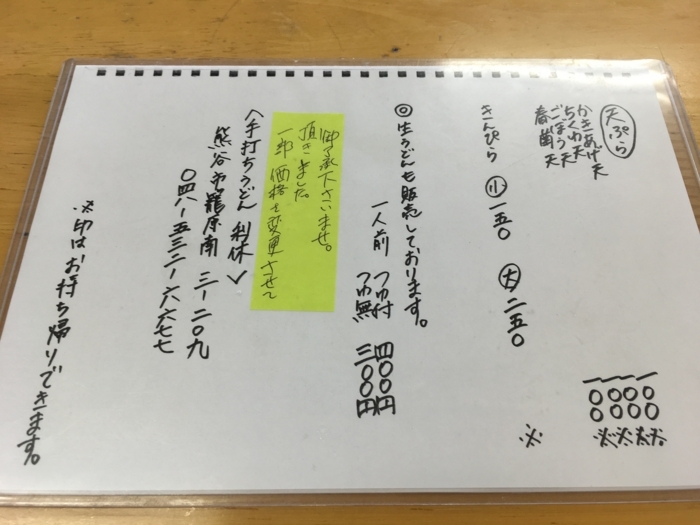 天ぷら
かきあげ天 一〇〇 ※
ちくわ天 一〇〇 ※
ごぼう天 一〇〇 ※
春菊天 一〇〇 ※
きんぴら ㊀小 一五〇 大 二五〇 ※
◎生うどんも販売しております。
一人前 つゆ付 四〇〇円
つゆ無 三〇〇円
一部価格を変更させて
頂きました。
御了承下さいませ。
〈手打ちうどん 利休〉
熊谷市籠原南 三ー二〇九
〇四八ー五三二ー六六七七
※印はお持ち帰りできます。